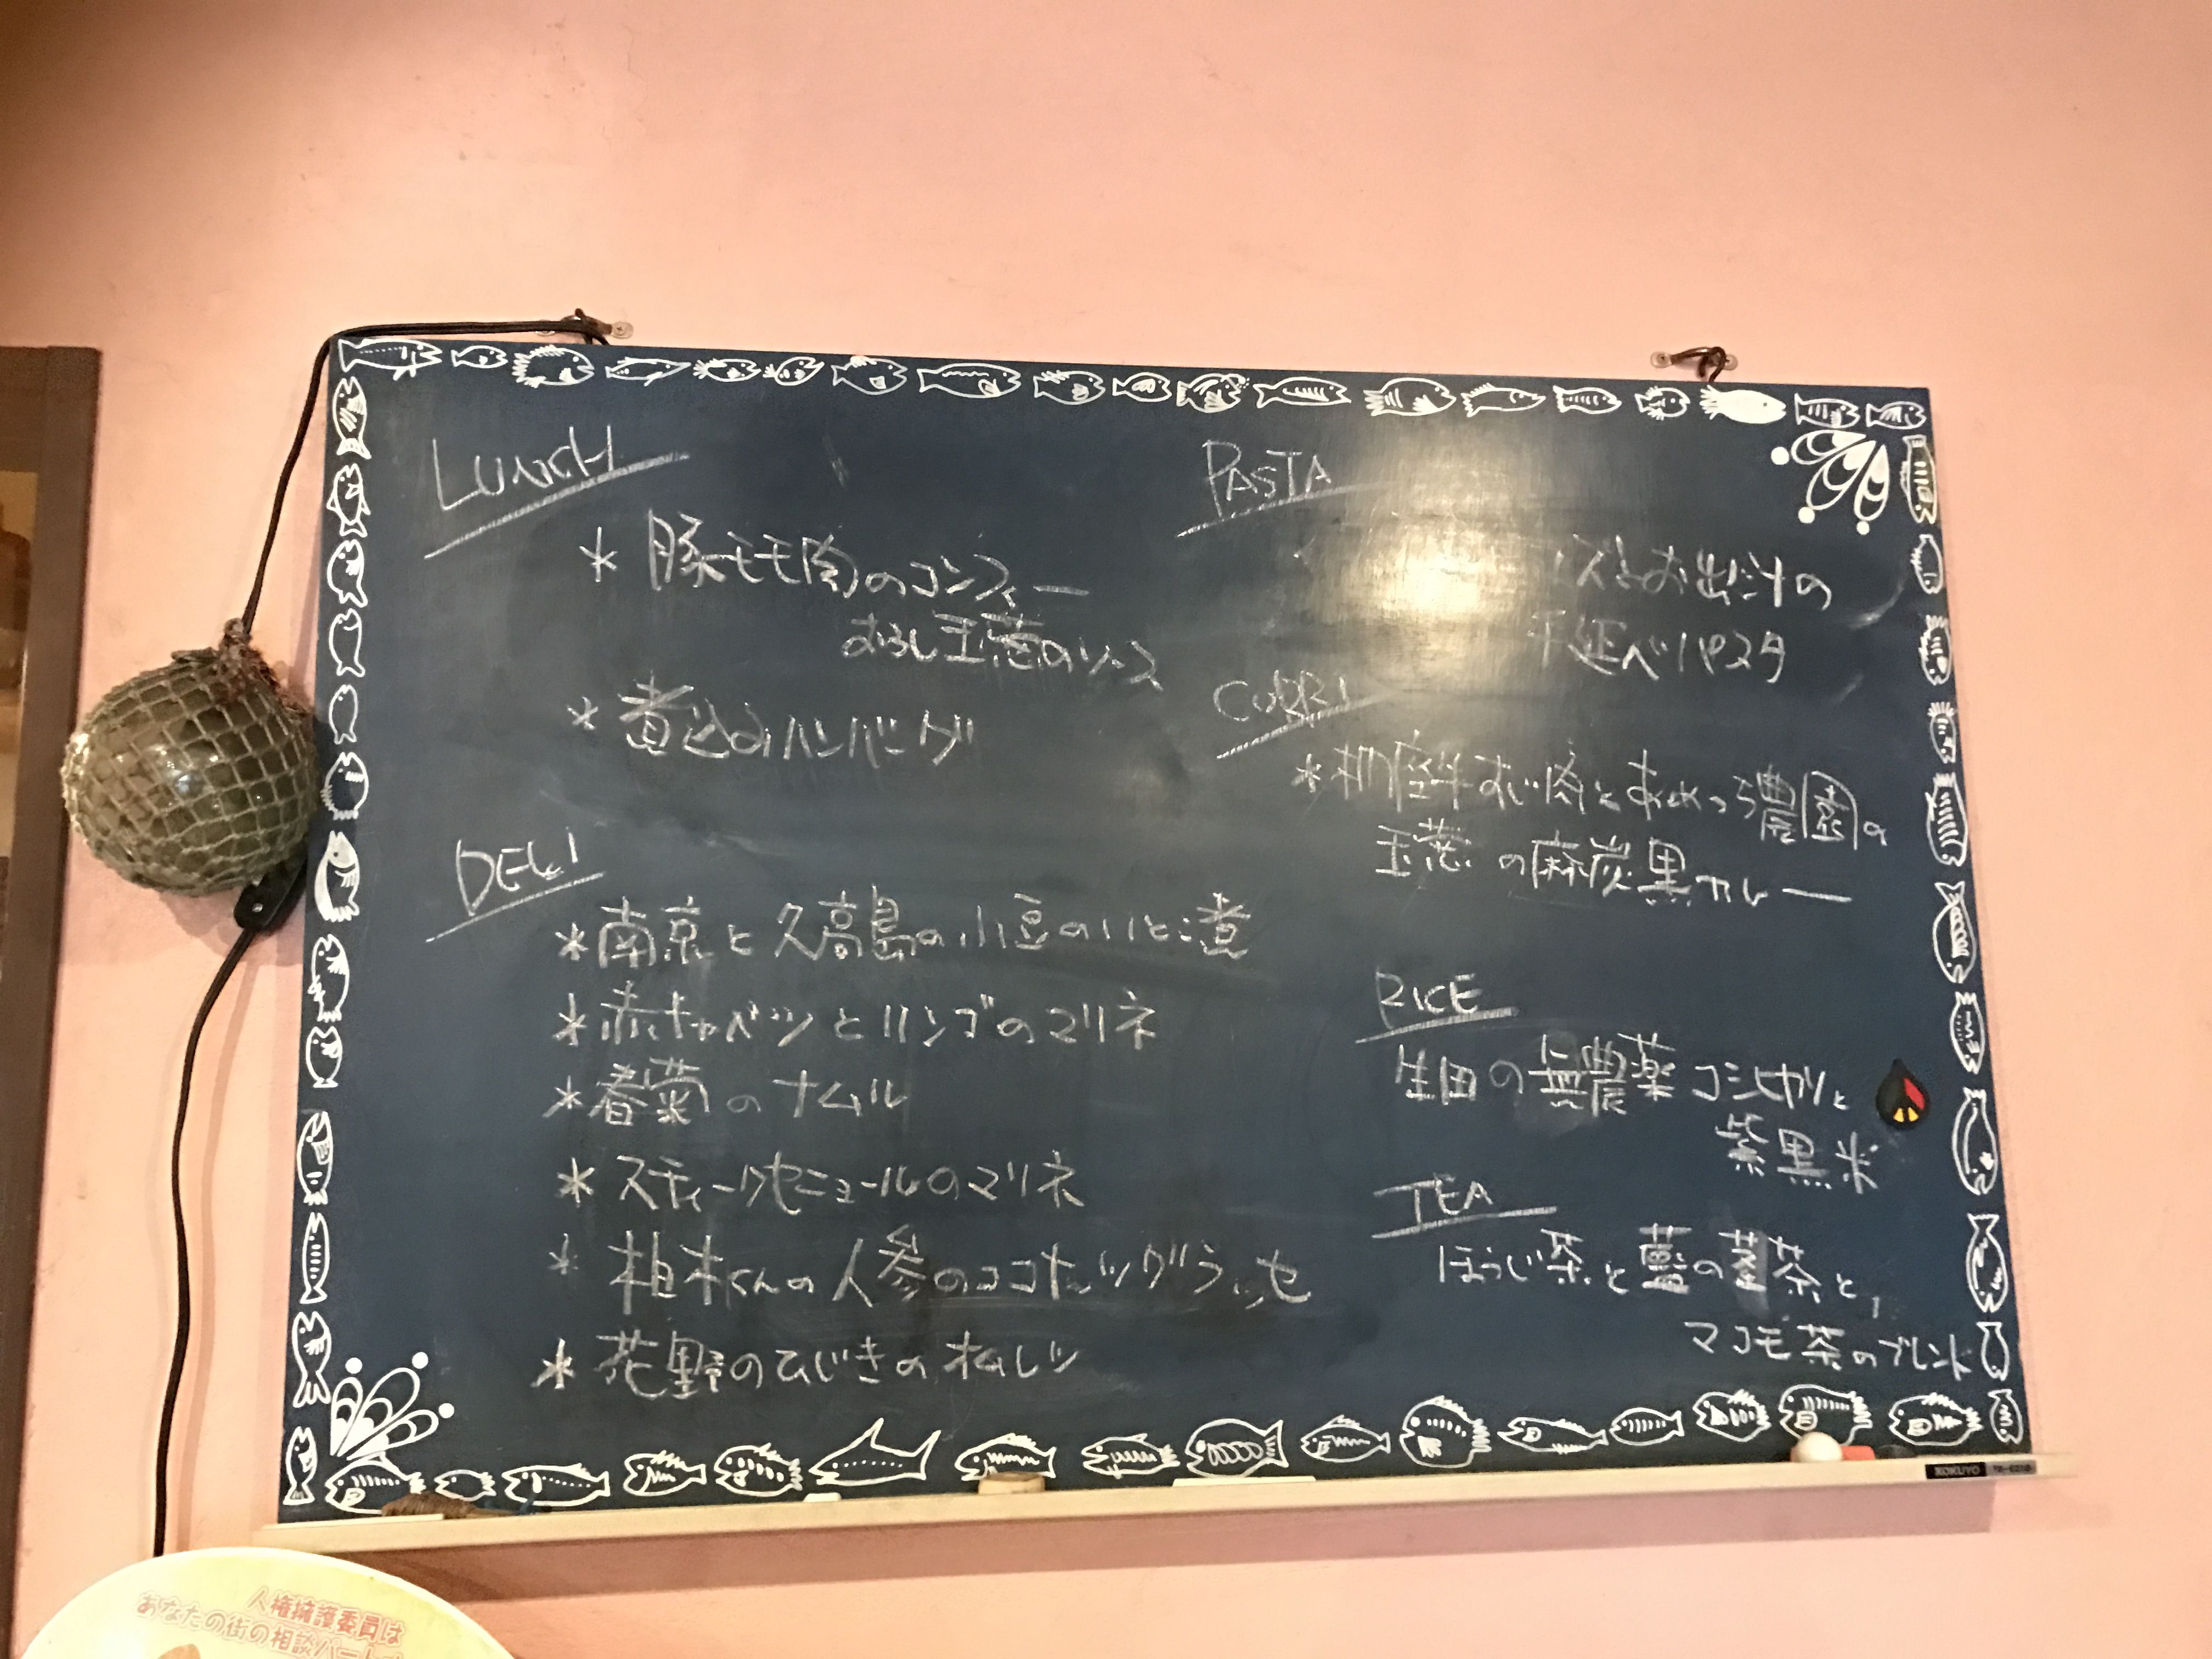 LUNCH
* 豚モモ肉のコンフィー
おろし玉葱のソース
* 煮込みハンバーグ
DELI
* 南京と久高島の小豆のいとこ煮
* 赤キャベツとリンゴのマリネ
* 春菊のナムル
* スティックセニョールのマリネ
* 植木くんの人参のココナッツグラッセ
* 花野のひじきのオムレツ
PASTA
ズとお出汁の
手延べパスタ
CURRY
すじ肉とあめつち農園の
玉葱の麻炭黒カレー
RICE
生田の無農薬コシヒカリと
紫黒米
TEA
ほうじ茶と藍の茎茶と、
マコモ茶のブレンド
KOKUYO
人権擁護委員は
あなたの街の相談パートナ